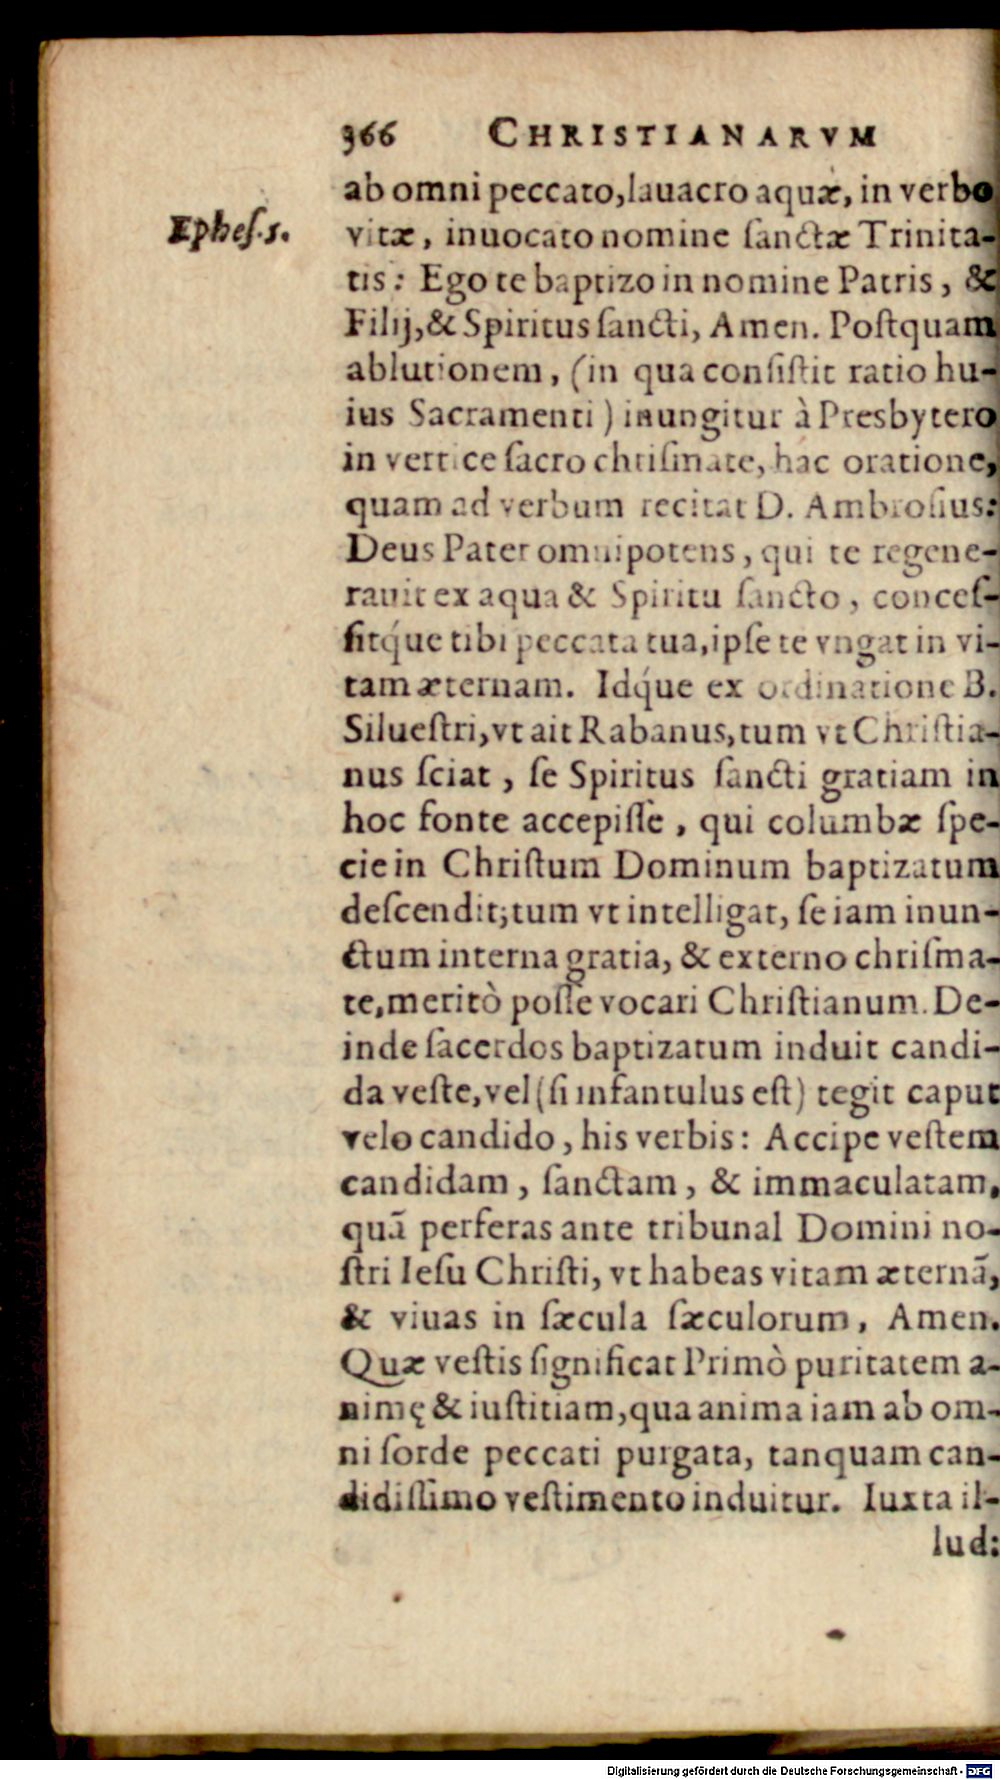 366 CHRISTIANARVM
ab omni peccato, lauacro aquæ, in verbo
Ephes.5.
vitæ, inuocato nomine ſanctæ Trinita-
tis: Ego te baptizo in nomine Patris, &
Filij, & Spiritus ſancti, Amen. Poſtquam
ablutionem, (in qua conſiſtit ratio hu-
ius Sacramenti) inungitur à Presbytero
in vertice ſacro chriſmate, hac oratione,
quam ad verbum recitat D. Ambroſius:
Deus Pater omnipotens, qui te regene-
rauit ex aqua & Spiritu ſancto, conceſ-
ſitq́ue tibi peccata tua, ipſe te vngat in vi-
tam æternam. Idq́ue ex ordinatione B.
Silueſtri, vt ait Rabanus, tum vt Chriſtia-
nus ſciat, ſe Spiritus ſancti gratiam in
hoc fonte accepiſſe, qui columbæ ſpe-
cie in Chriſtum Dominum baptizatum
deſcendit; tum vt intelligat, ſe iam inun-
ctum interna gratia, & externo chriſma-
te, meritò poſſe vocari Chriſtianum. De-
inde ſacerdos baptizatum induit candi-
da veſte, vel (ſi infantulus eſt) tegit caput
velo candido, his verbis: Accipe veſtem
candidam, ſanctam, & immaculatam,
quā perferas ante tribunal Domini no-
ſtri Ieſu Chriſti, vt habeas vitam æternā,
& viuas in ſæcula ſæculorum, Amen.
Quæ veſtis ſignificat Primò puritatem a-
nimę & iuſtitiam, qua anima iam ab om-
ni ſorde peccati purgata, tanquam can-
didiſſimo veſtimento induitur. Iuxta il-
lud:
Digitalisierung gefördert durch die Deutsche Forschungsgemeinschaft - DFG